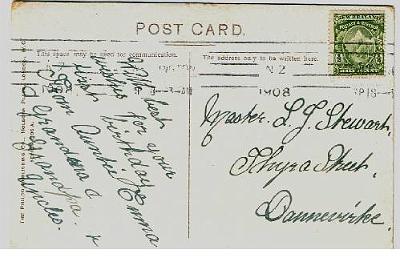 POST CARD.
This space may be used for communication.
The address only to be written here.
NEW ZEALAND
N Z
1908
With best
wishes for your
birthday
from Auntie Emma
Grandma &
Grandpa. &
Uncles.
Master L. J. Stewart,
Street,
Dannevirke.